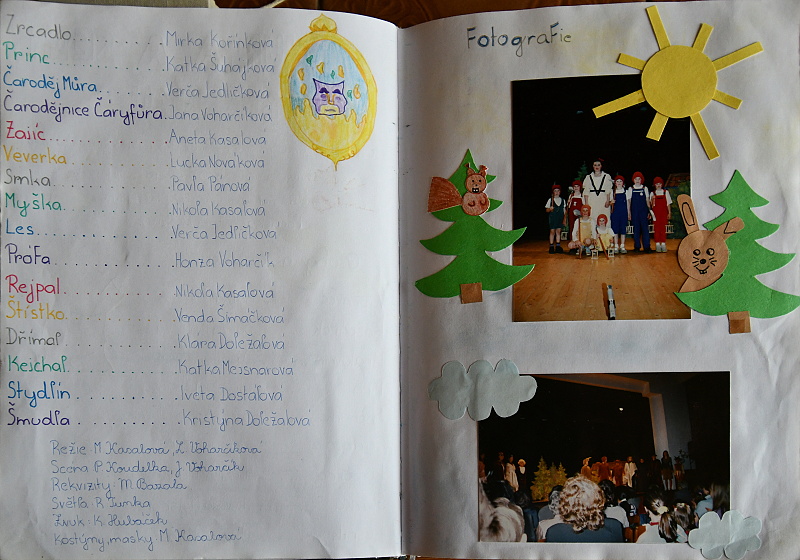 Zrcadlo.............Mirka Kořínková
Princ...............Katka Šuhajková
Čaroděj Můra........Verča Jedličková
Čarodějnice Čáryfúra.Jana Voharčíková
Zajíc...............Aneta Kasalová
Veverka.............Lucka Nováková
Srnka...............Pavla Pánová
Myška...............Nikola Kasalová
Les.................Verča Jedličková
Prófa...............Honza Voharčík
Rejpal..............Nikola Kasalová
Štístko.............Venda Šimáčková
Dřímal..............Klára Doležalová
Kejchal.............Katka Mejsnarová
Stydlín.............Iveta Dostálová
Šmudla..............Kristýna Doležalová
Režie: M. Kasalová, L. Voharčíková
Scéna: P. Koudelka, J. Voharčík
Rekvizity: M. 
Světla: R. 
Zvuk: K. Hubáček
Kostýny, masky: M. Kasalová
Fotografie